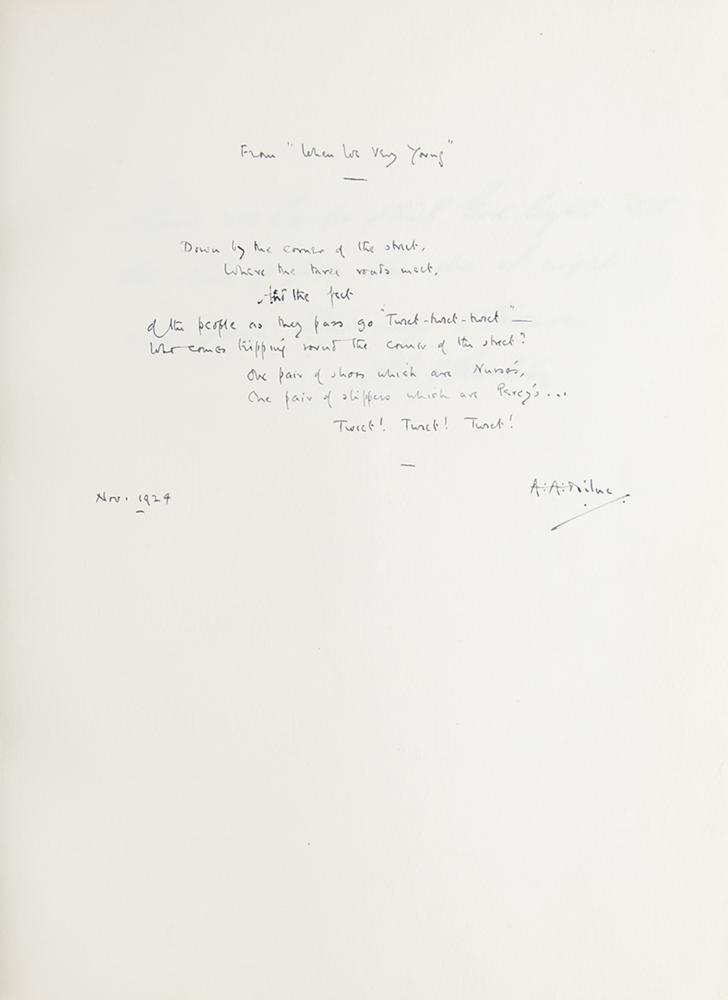 From "When We Very Young"
Down by the corner of the street,
Where the three roads meet,
And the feet
Of the people as they pass go "Tweet-tweet-tweet"—
Who comes tripping round the corner of the street?
One pair of shoes which are Nurse's,
One pair of slippers which are Percy's...
Tweet! Tweet! Tweet!
Nov. 1924
A.A.Milne.